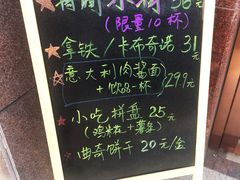 36元
(限量10杯)
拿铁/卡布奇诺 31元
意大利肉酱面
+饮品一杯 29.9元
小吃拼盘 25元
(鸡米花+薯条)
曲奇饼干 20元/盒